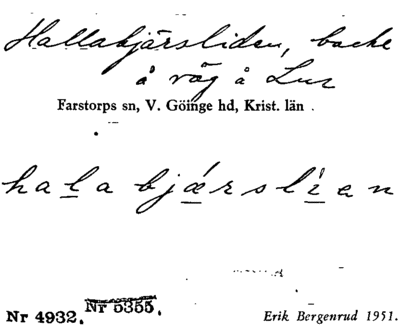 Hallabjärsliden, backe
å väg å Lur
Farstorps sn, V. Göinge hd, Krist. län.
ha l̲ a bjǽ̲rslì̲en
Nr 4932. Nr 5355.
Erik Bergenrud 1951.